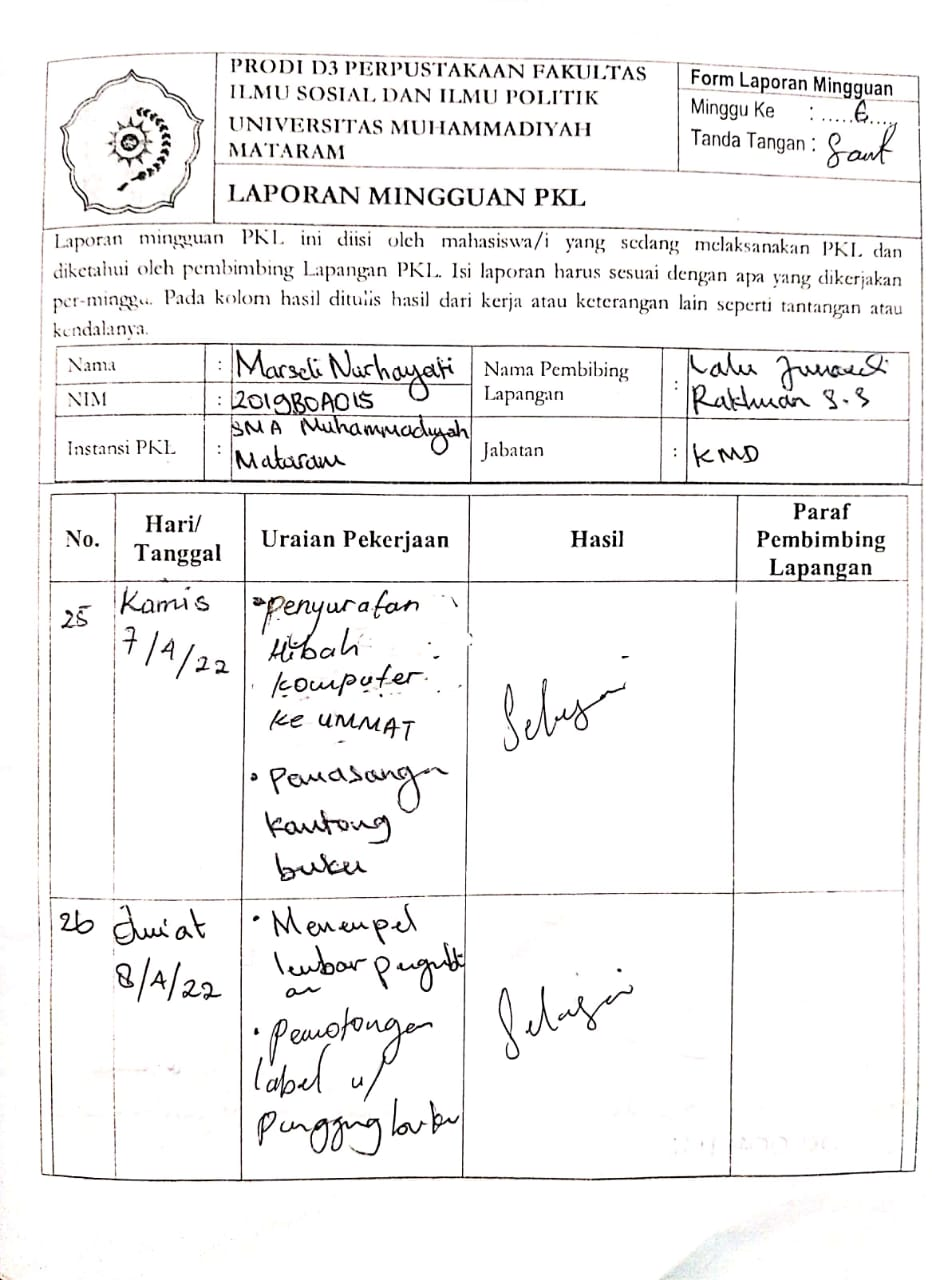 PRODI D3 PERPUSTAKAAN FAKULTAS
ILMU SOSIAL DAN ILMU POLITIK
UNIVERSITAS MUHAMMADIYAH
MATARAM
LAPORAN MINGGUAN PKL
Form Laporan Mingguan
Minggu Ke : .....6.....
Tanda Tangan :
Laporan mingguan PKL ini diisi oleh mahasiswa/i yang sedang melaksanakan PKL dan
diketahui oleh pembimbing Lapangan PKL. Isi laporan harus sesuai dengan apa yang dikerjakan
per-minggu. Pada kolom hasil ditulis hasil dari kerja atau keterangan lain seperti tantangan atau
kendalanya.
Nama : Marseli Nurhayati
NIM : 2019B0A015
Instansi PKL : SMA Muhammadiyah
Mataram
Nama Pembibing
Lapangan : Lalu Junaedi
Rakhman S.S
Jabatan : KMD
No.
Hari/
Tanggal
Uraian Pekerjaan
Hasil
Paraf
Pembimbing
Lapangan
25
Kamis
7/4/22
• Penyuratan
Hibah
komputer
ke UMMAT
• Pemasangan
kantong
buku
Selesai
26
Jum'at
8/4/22
• Menempel
lembar
• Pemotongan
label u/
Punggung buku
Selesai